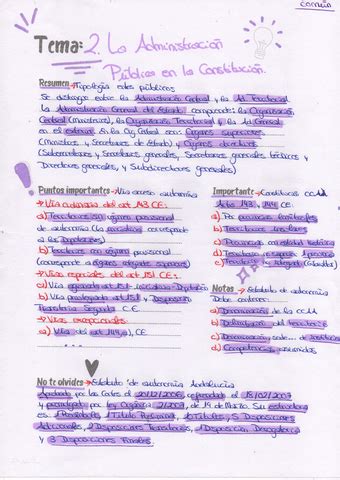 común
Tema: 2. La Administración
Pública en la Constitución.
Resumen → Tipología entes públicos
Se distingue entre la Administración Central y la Ad Territorial
La Administración General del Estado comprende la Organización
Central (Ministerios), la Organización Territorial y la Ad General
en el exterior. En la Org Central son Órganos superiores
(Ministros y Secretarios de Estado) y Órganos directivos
(Subsecretarios y Secretarios generales, Secretarios generales técnicos y
Directores generales, y Subdirectores generales)
Puntos importantes → Vías acceso autonomía
→ Vía ordinaria del art 143 CE:
a) Territorios sin régimen provisional
de autonomía (La iniciativa corresponde
a las Diputaciones)
b) Territorios con régimen provisional
(corresponde a órganos colegiados superiores)
→ Vías especiales del art 151 CE:
a) Vía agravada art 151 - iniciativa - Diputación
b) Vía privilegiada art 151 y Disposición
Transitoria Segunda C.E
→ Vías excepcionales
a) Vía del art 144, CE
Importante → Constituirse CCAA
Arts 143, 144 CE:
a) Por provincias limítrofes
b) Territorios insulares
c) Provincias con entidad histórica
d) Territorio no supere 1 provincia
e) Territorio no integrado (Gibraltar)
Notas → Estatuto de autonomía
Debe contener:
a) Denominación de la CCAA
b) Delimitación del territorio
c) Denominación, sede... de
d) Competencias asumidas
No te olvides → Estatuto de autonomía Andalucía
Aprobado por las Cortes el 20/12/2006, refrendado el 18/02/2007
y promulgado por Ley Orgánica 2/2007, de 19 de Marzo. Su estructura
es: 1 Preámbulo, 1 Título Preliminar, 10 Títulos, 5 Disposiciones
Adicionales, 2 Disposiciones Transitorias, 1 Disposición Derogatoria
y 3 Disposiciones Finales